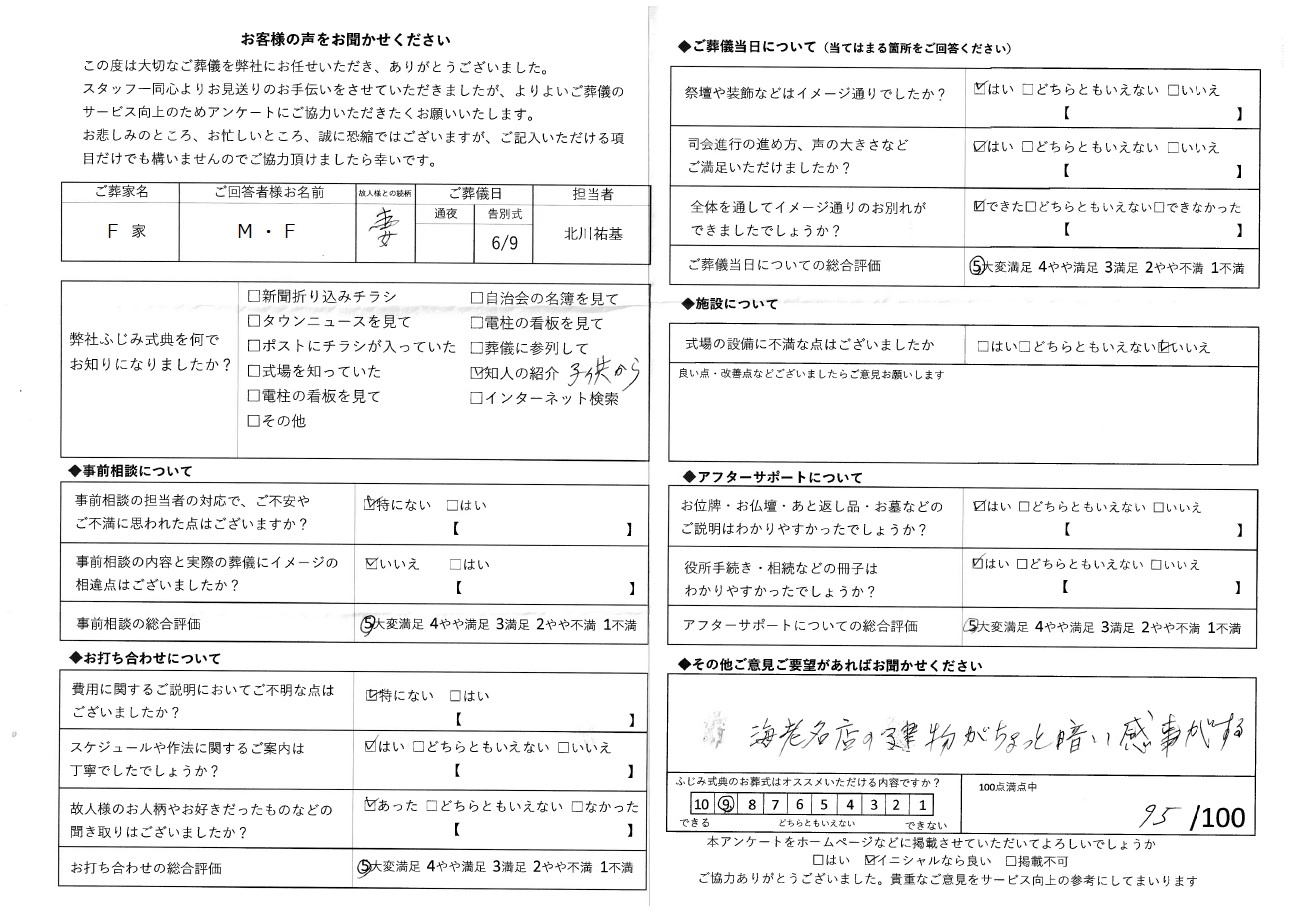 お客様の声をお聞かせください
この度は大切なご葬儀を弊社にお任せいただき、ありがとうございました。
スタッフ一同心よりお見送りのお手伝いをさせていただきましたが、よりよいご葬儀の
サービス向上のためアンケートにご協力いただきたくお願いいたします。
お悲しみのところ、お忙しいところ、誠に恐縮ではございますが、ご記入いただける項
目だけでも構いませんのでご協力頂けましたら幸いです。
ご葬家名 ご回答者様お名前 故人様との続柄 ご葬儀日 担当者
通夜 告別式
F 家 M・F 妻 6/9 北川祐基
弊社ふじみ式典を何で
お知りになりましたか？
□新聞折り込みチラシ □自治会の名簿を見て
□タウンニュースを見て □電柱の看板を見て
□ポストにチラシが入っていた □葬儀に参列して
□式場を知っていた ☑知人の紹介 子供から
□電柱の看板を見て □インターネット検索
□その他
◆事前相談について
事前相談の担当者の対応で、ご不安や
ご不満に思われた点はございますか？
☑特にない □はい
【 】
事前相談の内容と実際の葬儀にイメージの
相違点はございましたか？
☑いいえ □はい
【 】
事前相談の総合評価 ⑤大変満足 4やや満足 3満足 2やや不満 1不満
◆お打ち合わせについて
費用に関するご説明においてご不明な点は
ございましたか？
☑特にない □はい
【 】
スケジュールや作法に関するご案内は
丁寧でしたでしょうか？
☑はい □どちらともいえない □いいえ
【 】
故人様のお人柄やお好きだったものなどの
聞き取りはございましたか？
☑あった □どちらともいえない □なかった
【 】
お打ち合わせの総合評価 ⑤大変満足 4やや満足 3満足 2やや不満 1不満
◆ご葬儀当日について（当てはまる箇所をご回答ください）
祭壇や装飾などはイメージ通りでしたか？
☑はい □どちらともいえない □いいえ
【 】
司会進行の進め方、声の大きさなど
ご満足いただけましたか？
☑はい □どちらともいえない □いいえ
【 】
全体を通してイメージ通りのお別れが
できましたでしょうか？
☑できた□どちらともいえない□できなかった
【 】
ご葬儀当日についての総合評価 ⑤大変満足 4やや満足 3満足 2やや不満 1不満
◆施設について
式場の設備に不満な点はございましたか □はい□どちらともいえない☑いいえ
良い点・改善点などございましたらご意見お願いします
◆アフターサポートについて
お位牌・お仏壇・あと返し品・お墓などの
ご説明はわかりやすかったでしょうか？
☑はい □どちらともいえない □いいえ
【 】
役所手続き・相続などの冊子は
わかりやすかったでしょうか？
☑はい □どちらともいえない □いいえ
【 】
アフターサポートについての総合評価 ⑤大変満足 4やや満足 3満足 2やや不満 1不満
◆その他ご意見ご要望があればお聞かせください
海老名店の建物がちょっと暗い感事がする
ふじみ式典のお葬式はオススメいただける内容ですか？
10 ⑨ 8 7 6 5 4 3 2 1
できる どちらともいえない できない
100点満点中
95 /100
本アンケートをホームページなどに掲載させていただいてよろしいでしょうか
□はい ☑イニシャルなら良い □掲載不可
ご協力ありがとうございました。貴重なご意見をサービス向上の参考にしてまいります